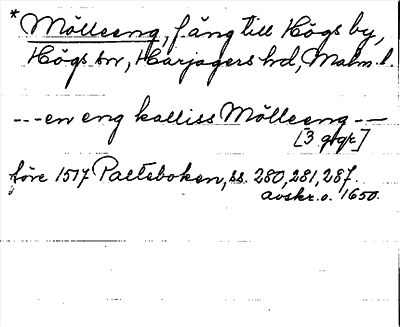 * Mölleeng, f. äng till Högs by,
Högs sn, Harjagers hd, Malm. l.
---en eng kalliss Mölleeng---
[3 ggr]
före 1517 Palteboken, ss. 280, 281, 287.
avskr. o. 1650.